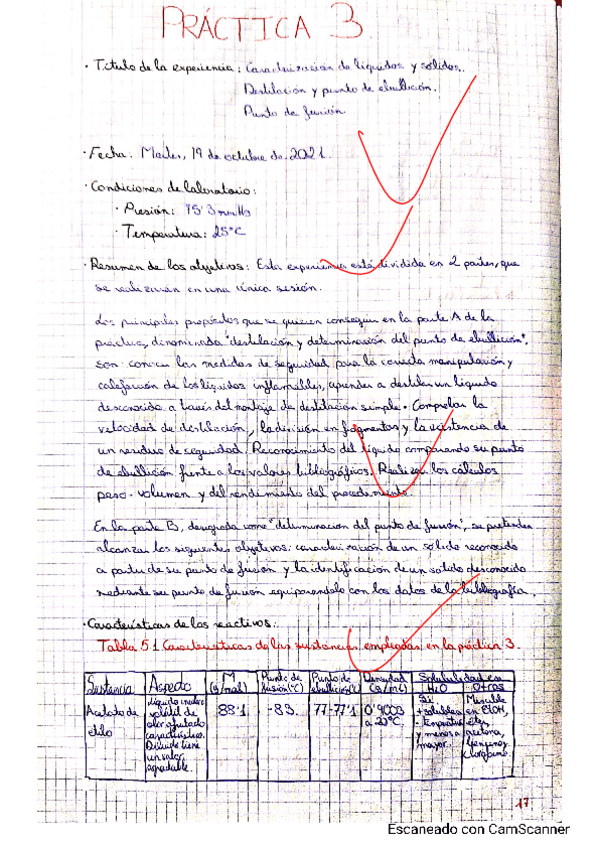 PRÁCTICA 3
· Título de la experiencia: Caracterización de líquidos y sólidos.
Destilación y punto de ebullición.
Punto de fusión.
· Fecha: Martes, 19 de octubre de 2021.
· Condiciones de laboratorio:
· Presión: 753 mmHg
· Temperatura: 25°C
· Resumen de los objetivos: Esta experiencia está dividida en 2 partes, que
se realizarán en una única sesión.
Los principales propósitos que se quieren conseguir en la parte A de la
práctica, denominada "destilación y determinación del punto de ebullición",
son: conocer las medidas de seguridad para la correcta manipulación y
calefacción de los líquidos inflamables, aprender a destilar un líquido
desconocido a través del montaje de destilación simple. Comprobar la
velocidad de destilación, la división en fragmentos y la existencia de
un residuo de seguridad. Reconocimiento del líquido comparando su punto
de ebullición frente a los valores bibliográficos. Realizar los cálculos
peso-volumen y del rendimiento del procedimiento.
En la parte B, designada como "determinación del punto de fusión", se pretenden
alcanzar los siguientes objetivos: caracterización de un sólido reconocido
a partir de su punto de fusión y la identificación de un sólido desconocido
mediante su punto de fusión equiparándolo con los datos de la bibliografía.
· Características de los reactivos:
Tabla 5.1 Características de las sustancias empleadas en la práctica 3.
Sustancia Aspecto M (g/mol) Punto de fusión (°C) Punto de ebullición (°C) Densidad (g/mL) Solubilidad en H2O Otros
Acetato de etilo Líquido incoloro volátil de olor afrutado característico. Diluido tiene un valor agradable. 88'1 -83. 77-77'1 0'9003 a 20°C. Sí + solubles en y menor a mayor. Miscible EtOH, éter, acetona, benceno y cloroformo.
17
Escaneado con CamScanner